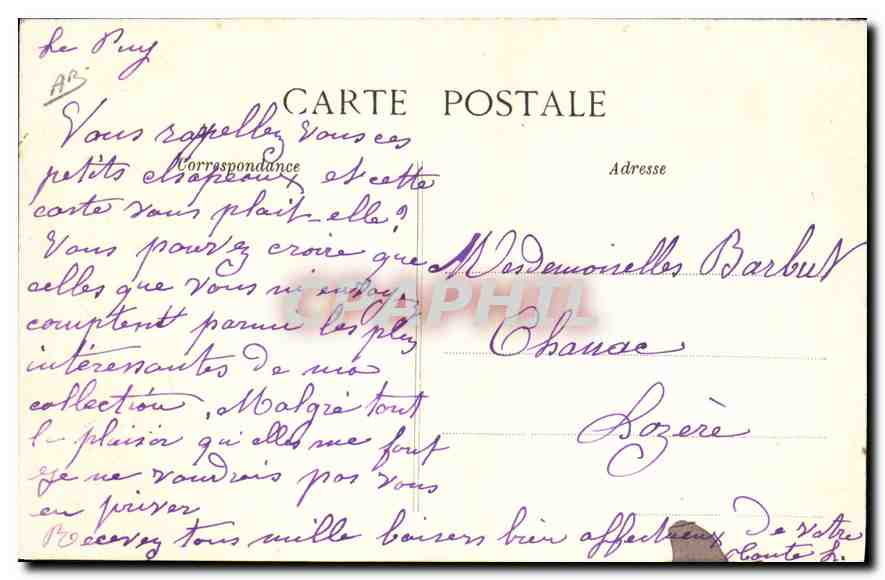 Le Puy
AB
CARTE POSTALE
Correspondance
Adresse
Vous rappellez vous ces
petits chapeaux et cette
carte vous plait-elle?
Vous pouvez croire que
celles que vous m'envoyez
comptent parmi les plus
intéressantes de ma
collection. Malgré tout
le plaisir qu'elles me font
je ne voudrais pas vous
en priver
Recevez tous mille baisers bien affectueux
De votre
Mesdemoiselles Barbut
Chanac
Lozère
CPAPHIL